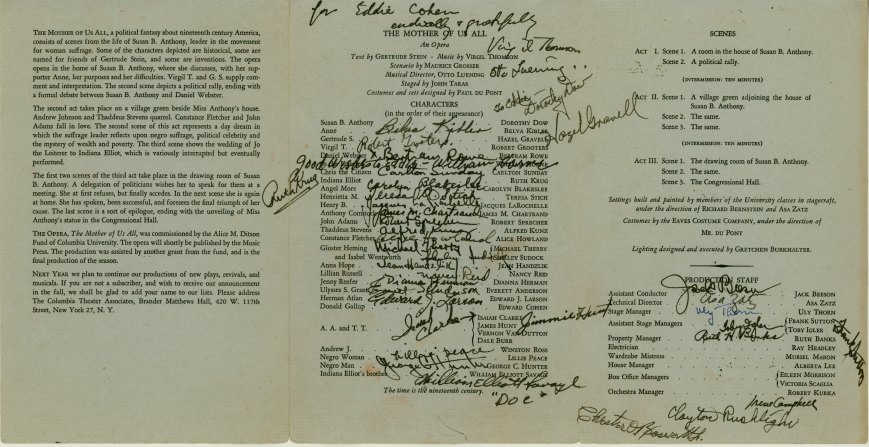 THE MOTHER OF US ALL, a political fantasy about nineteenth century America,
consists of scenes from the life of Susan B. Anthony, leader in the movement
for woman suffrage. Some of the characters depicted are historical, some are
named for friends of Gertrude Stein, and some are inventions. The opera
opens in the home of Susan B. Anthony, where she discusses, with her sup-
porter Anne, her purposes and her difficulties. Virgil T. and G. S. supply com-
ment and interpretation. The second scene depicts a political rally, ending with
a formal debate between Susan B. Anthony and Daniel Webster.
The second act takes place on a village green beside Miss Anthony's house.
Andrew Johnson and Thaddeus Stevens quarrel. Constance Fletcher and John
Adams fall in love. The second scene of this act represents a day dream in
which the suffrage leader reflects upon negro suffrage, political celebrity and
the mystery of wealth and poverty. The third scene shows the wedding of Jo
the Loiterer to Indiana Elliot, which is variously interrupted but eventually
performed.
The first two scenes of the third act take place in the drawing room of Susan
B. Anthony. A delegation of politicians wishes her to speak for them at a
meeting. She at first refuses, but finally accedes. In the next scene she is again
at home. She has spoken, been successful, and foresees the final triumph of her
cause. The last scene is a sort of epilogue, ending with the unveiling of Miss
Anthony's statue in the Congressional Hall.
THE OPERA, The Mother of Us All, was commissioned by the Alice M. Ditson
Fund of Columbia University. The opera will shortly be published by the Music
Press. The production was assisted by another grant from the fund, and is the
final production of the season.
NEXT YEAR we plan to continue our productions of new plays, revivals, and
musicals. If you are not a subscriber, and wish to receive our announcement
in the fall, we shall be glad to add your name to our lists. Please address
The Columbia Theater Associates, Brander Matthews Hall, 420 W. 117th
Street, New York 27, N. Y.
for Eddie Cohen
& gratefully
Virgil Thomson
THE MOTHER OF US ALL
An Opera
Text by GERTRUDE STEIN - Music by VIRGIL THOMSON
Scenario by MAURICE GROSSER
Musical Director, OTTO LUENING
Otto Luening
Staged by JOHN TARAS
Costumes and sets designed by PAUL DU PONT
to Eddie
Dorothy Dow
Hazel Gravell
CHARACTERS
(in the order of their appearance)
Susan B. Anthony DOROTHY DOW
Anne Belva Kibler BELVA KIBLER
Gertrude S. HAZEL GRAVELL
Virgil T. Robert Grooters ROBERT GROOTERS
Daniel Webster Bertram Rowe BERTRAM ROWE
good wishes to Eddie William Horne
Chris the Citizen Carlton Sunday CARLTON SUNDAY
Indiana Elliot RUTH KRUG
Ruth Krug
Angel More Carolyn Blakeslee CAROLYN BLAKESLEE
Henrietta M. Teresa Stich TERESA STICH
Henry B. JACQUES LAROCHELLE
Anthony Comstock James M. Chartrand JAMES M. CHARTRAND
John Adams Robert Sprecher ROBERT SPRECHER
Thaddeus Stevens Alfred Kunz ALFRED KUNZ
Constance Fletcher Alice Howland ALICE HOWLAND
Gloster Heming Michael Therry MICHAEL THERRY
and Isabel Wentworth SHIRLEY SUDOCK
Anna Hope Jean Handzlik JEAN HANDZLIK
Lillian Russell Nancy Reid NANCY REID
Jenny Reefer Dianna Herman DIANNA HERMAN
Ulysses S. G. Everett Anderson EVERETT ANDERSON
Herman Atlan Edward J. Larson EDWARD J. LARSON
Donald Gallup EDWARD COHEN
A. A. and T. T.
ISAIAH CLARKE
JAMES HUNT
VERNON VAN DUTTON
DALE BURR
Clarke
Jimmie Hunt
Andrew J. WINSTON ROSS
Negro Woman Lillie Peace LILLIE PEACE
Negro Man George C. Hunter GEORGE C. HUNTER
Indiana Elliot's brother WILLIAM ELLIOTT SAVAGE
William Elliott Savage
The time is the nineteenth century.
"DOC"
SCENES
ACT I. Scene 1. A room in the house of Susan B. Anthony.
Scene 2. A political rally.
(INTERMISSION: TEN MINUTES)
ACT II. Scene 1. A village green adjoining the house of
Susan B. Anthony.
Scene 2. The same.
Scene 3. The same.
(INTERMISSION: TEN MINUTES)
ACT III. Scene 1. The drawing room of Susan B. Anthony.
Scene 2. The same.
Scene 3. The Congressional Hall.
Settings built and painted by members of the University classes in stagecraft,
under the direction of RICHARD BERNSTEIN and ASA ZATZ
Costumes by the EAVES COSTUME COMPANY, under the direction of
MR. DU PONT
Lighting designed and executed by GRETCHEN BURKHALTER.
PRODUCTION STAFF
Assistant Conductor Jack Beeson JACK BEESON
Technical Director Asa Zatz ASA ZATZ
Stage Manager Uly Thorn ULY THORN
Assistant Stage Managers FRANK SUTTON
TOBY IGLER
Frank Sutton
Property Manager Ruth H. Banks RUTH BANKS
Electrician RAY HEADLEY
Wardrobe Mistress MURIEL MARON
House Manager ALBERTA LEE
Box Office Managers EILEEN MORRISON
VICTORIA SCAGLIA
Orchestra Manager ROBERT KURKA
Irene Campbell
Clayton Rushlight
Chester D. Bosworth